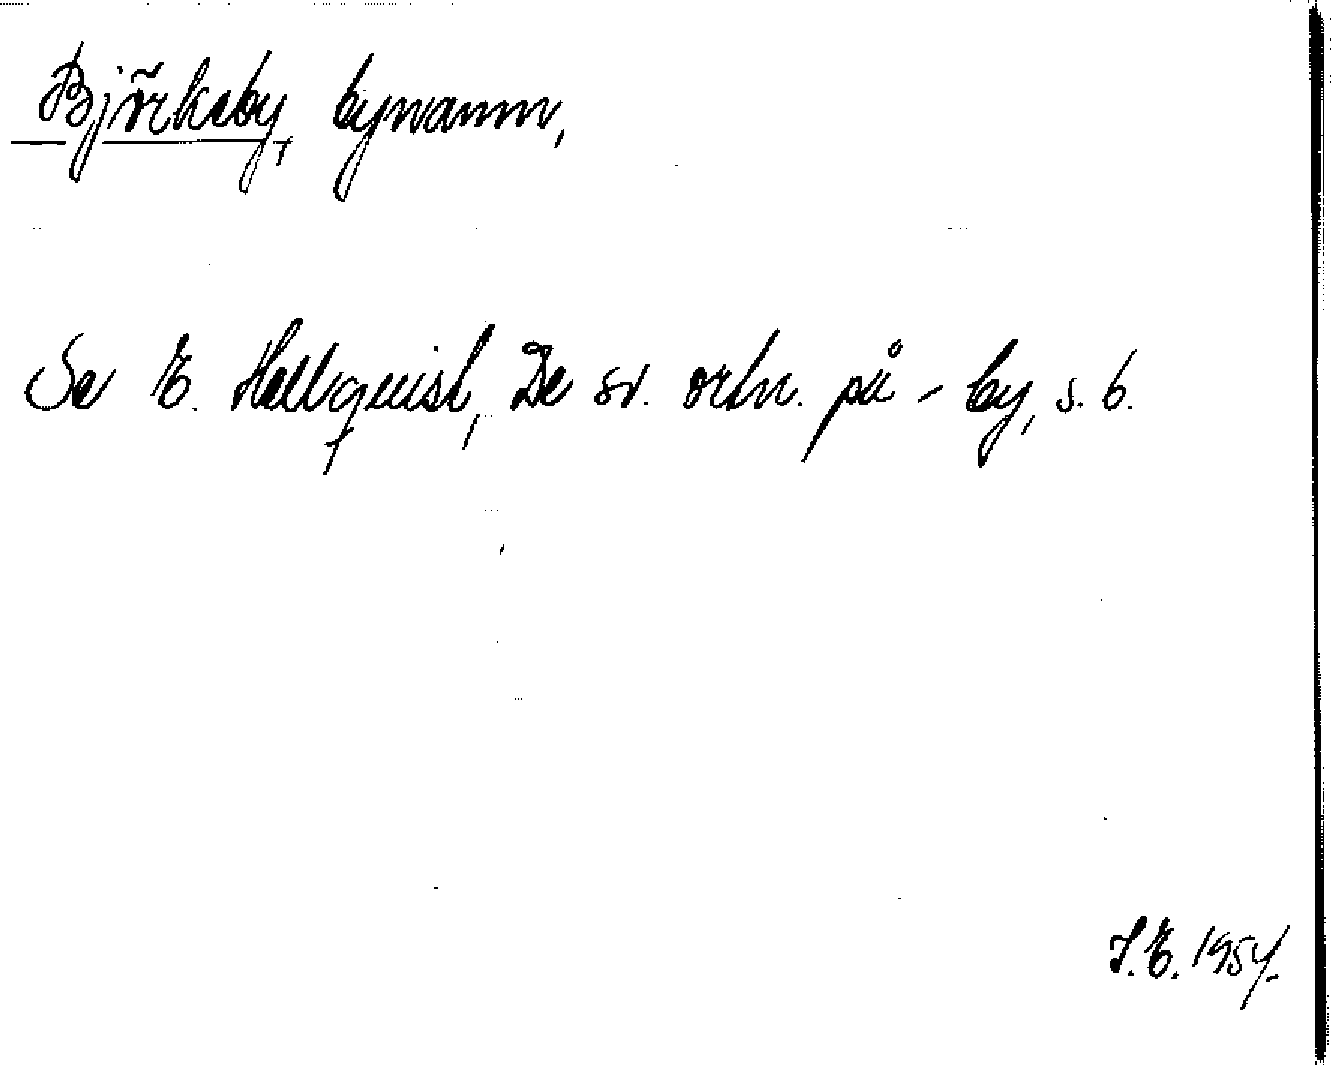 Björkeby, bynamn,
Se E. Hellquist, De sv. ortn. på -by, s. 6.
I.E. 1954.